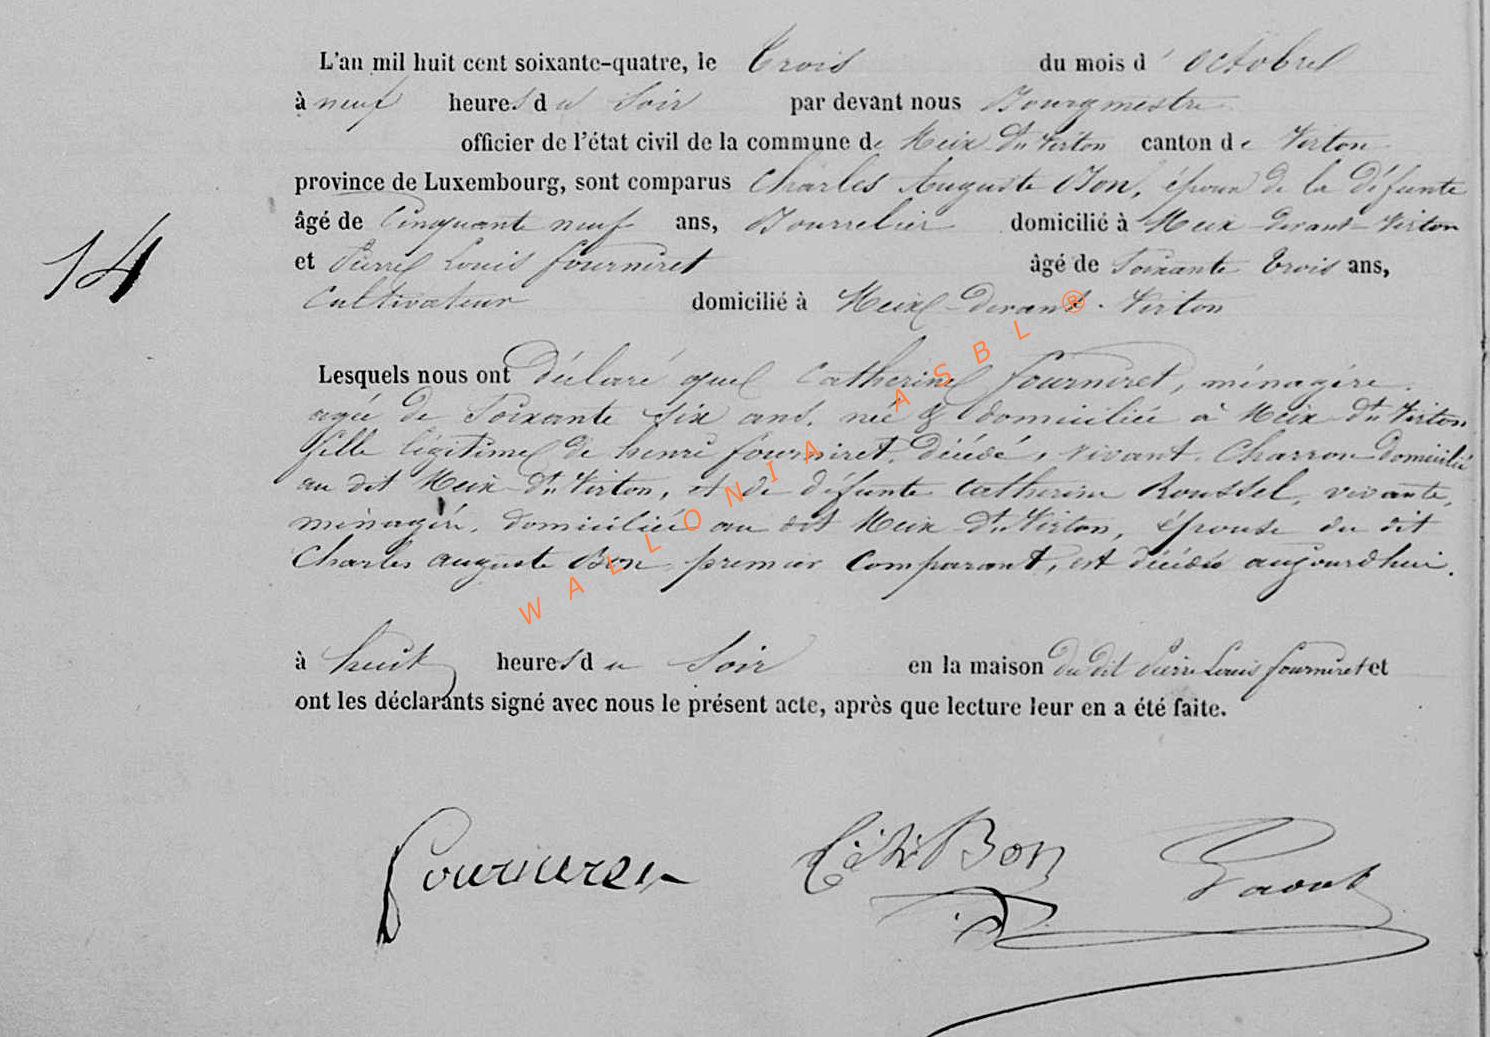 L'an mil huit cent soixante-quatre, le Trois du mois d' octobre
à neuf heures du Soir par devant nous Bourgmestre
officier de l'état civil de la commune de Meix Dt Virton canton de Virton
province de Luxembourg, sont comparus Charles Auguste Bon, époux de la défunte
âgé de Cinquante neuf ans, Bourrelier domicilié à Meix devant Virton
14
et Pierre Louis fourniret âgé de Soixante Trois ans,
Cultivateur domicilié à Meix devant Virton
Lesquels nous ont déclaré que Catherine fourniret, ménagère
agée de Soixante six ans, née & domiciliée à Meix Dt Virton
fille légitime de henri fourniret, décédé, vivant Charron domicilié
au dit Meix Dt Virton, et de défunte Catherine Roussel, vivante,
ménagère, domiciliée au dit Meix Dt Virton, épouse du dit
Charles auguste Bon premier Comparant, est décédée aujourd'hui.
à huit heures du Soir en la maison du dit Pierre Louis fourniret et
ont les déclarants signé avec nous le présent acte, après que lecture leur en a été faite.
fourniret Bon
WALLONIA ASBL ®